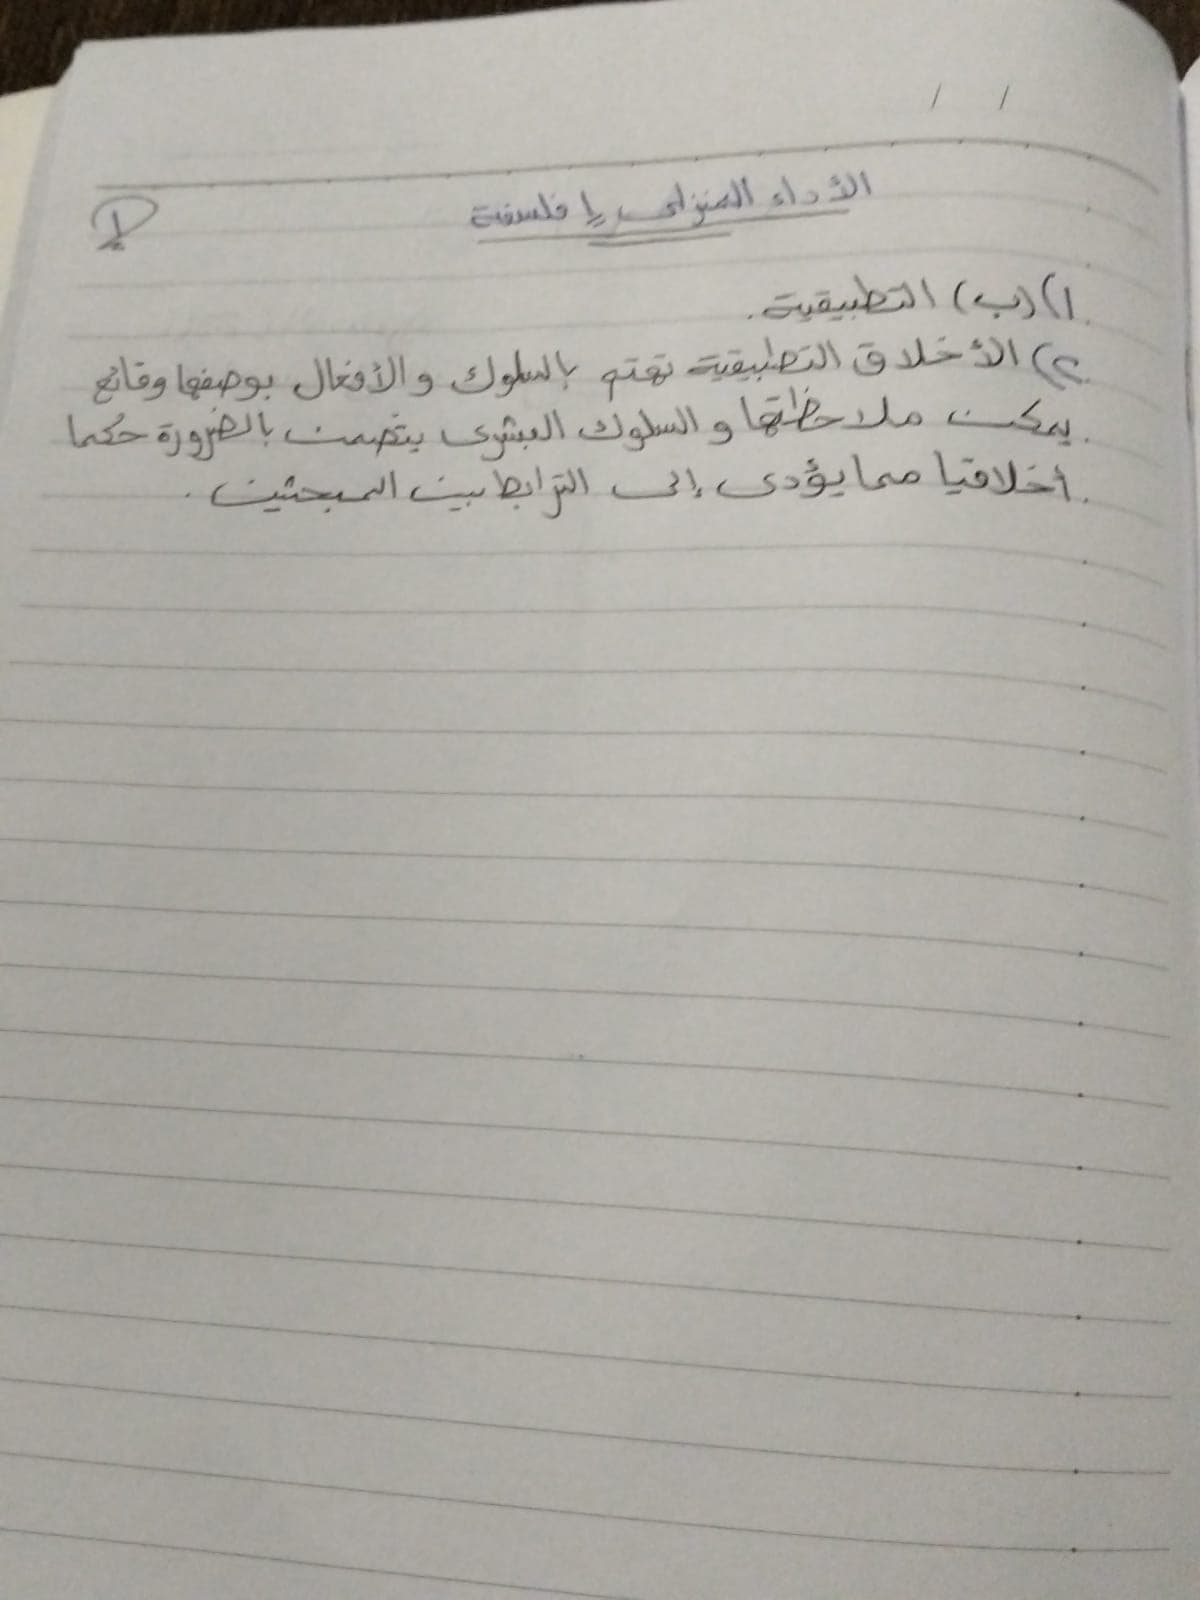 / /
الأداء المنزلى ١/ فلسفة
١
١) (ب) التطبيقية.
٢) الأخلاق التطبيقية تهتم بالسلوك والأفعال بوصفها وقائع
يمكن ملاحظتها والسلوك البشرى يتضمن بالضرورة حكما
أخلاقيا مما يؤدى إلى الترابط بين المبحثين.